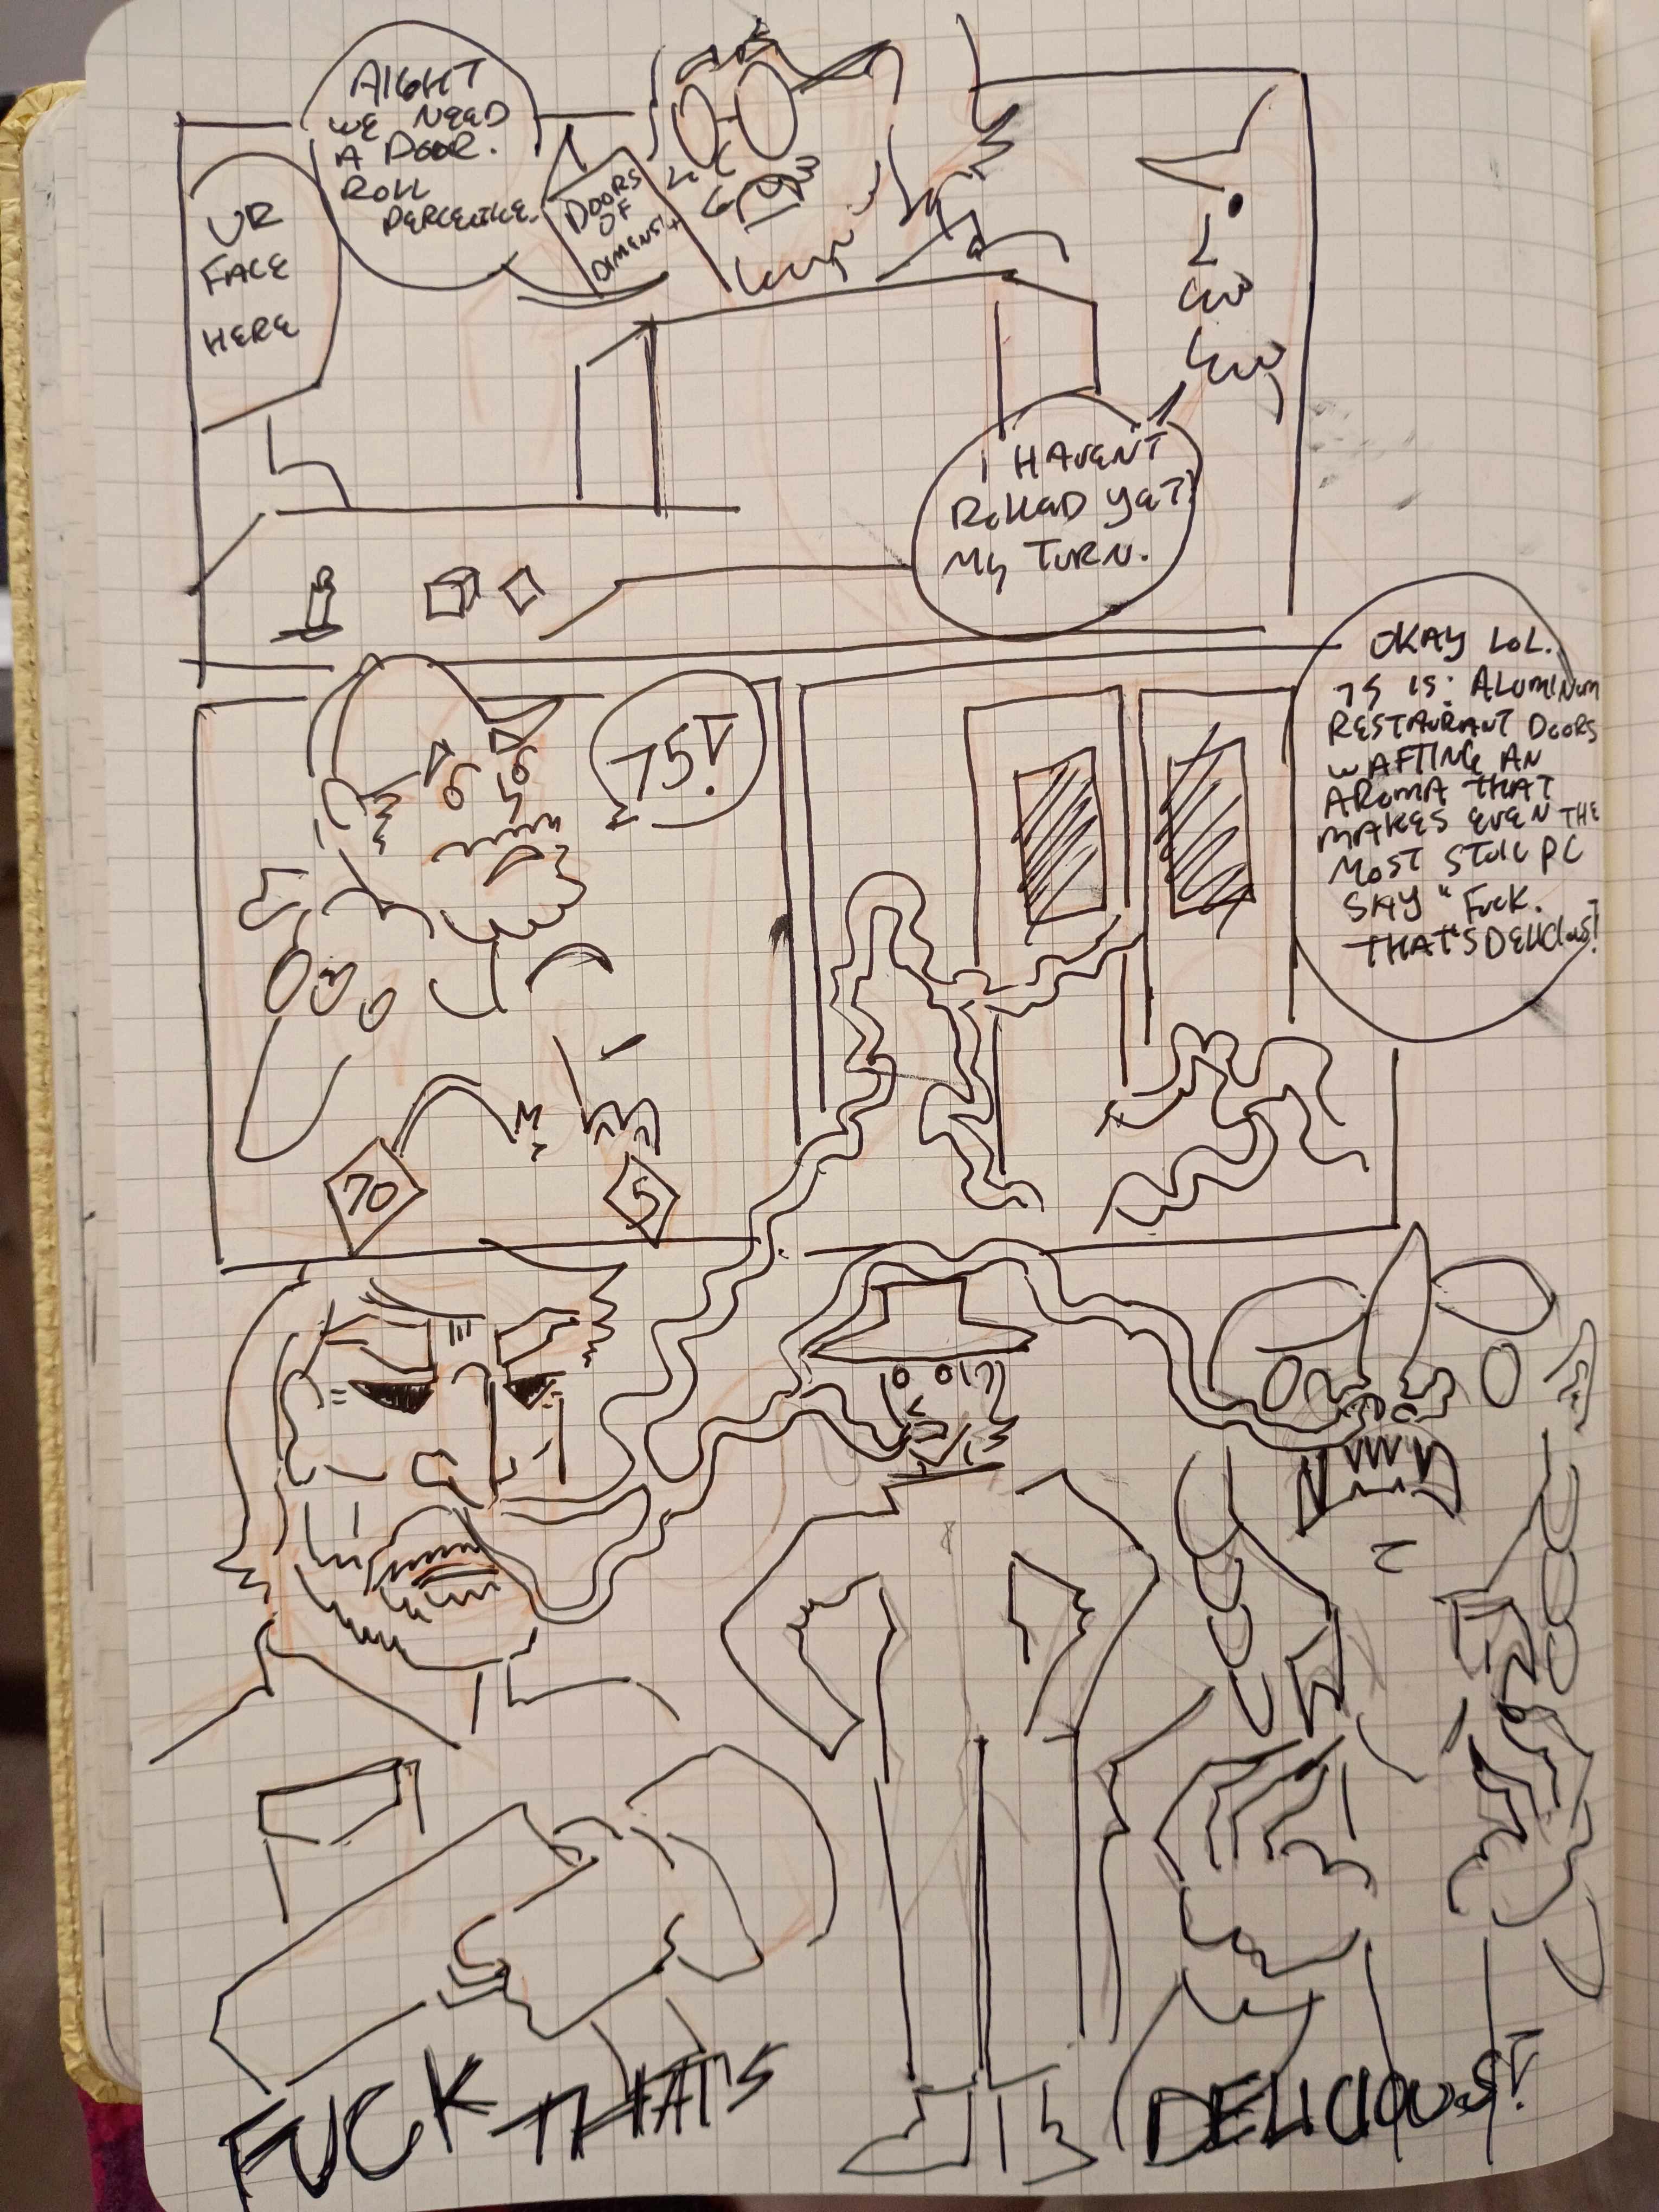 AIGHT
WE NEED
A DOOR.
ROLL
PERCENTILE.
UR
FACE
HERE
DOORS
OF
DIMENSI
I HAVENT
ROLLED YET!
MY TURN.
75!
OKAY LOL.
75 IS: ALUMINUM
RESTAURANT DOORS
WAFTING AN
AROMA THAT
MAKES EVEN THE
MOST STOIC PC
SAY "FUCK.
THAT'S DELICIOUS!
70
5
FUCK THAT'S
DELICIOUS!